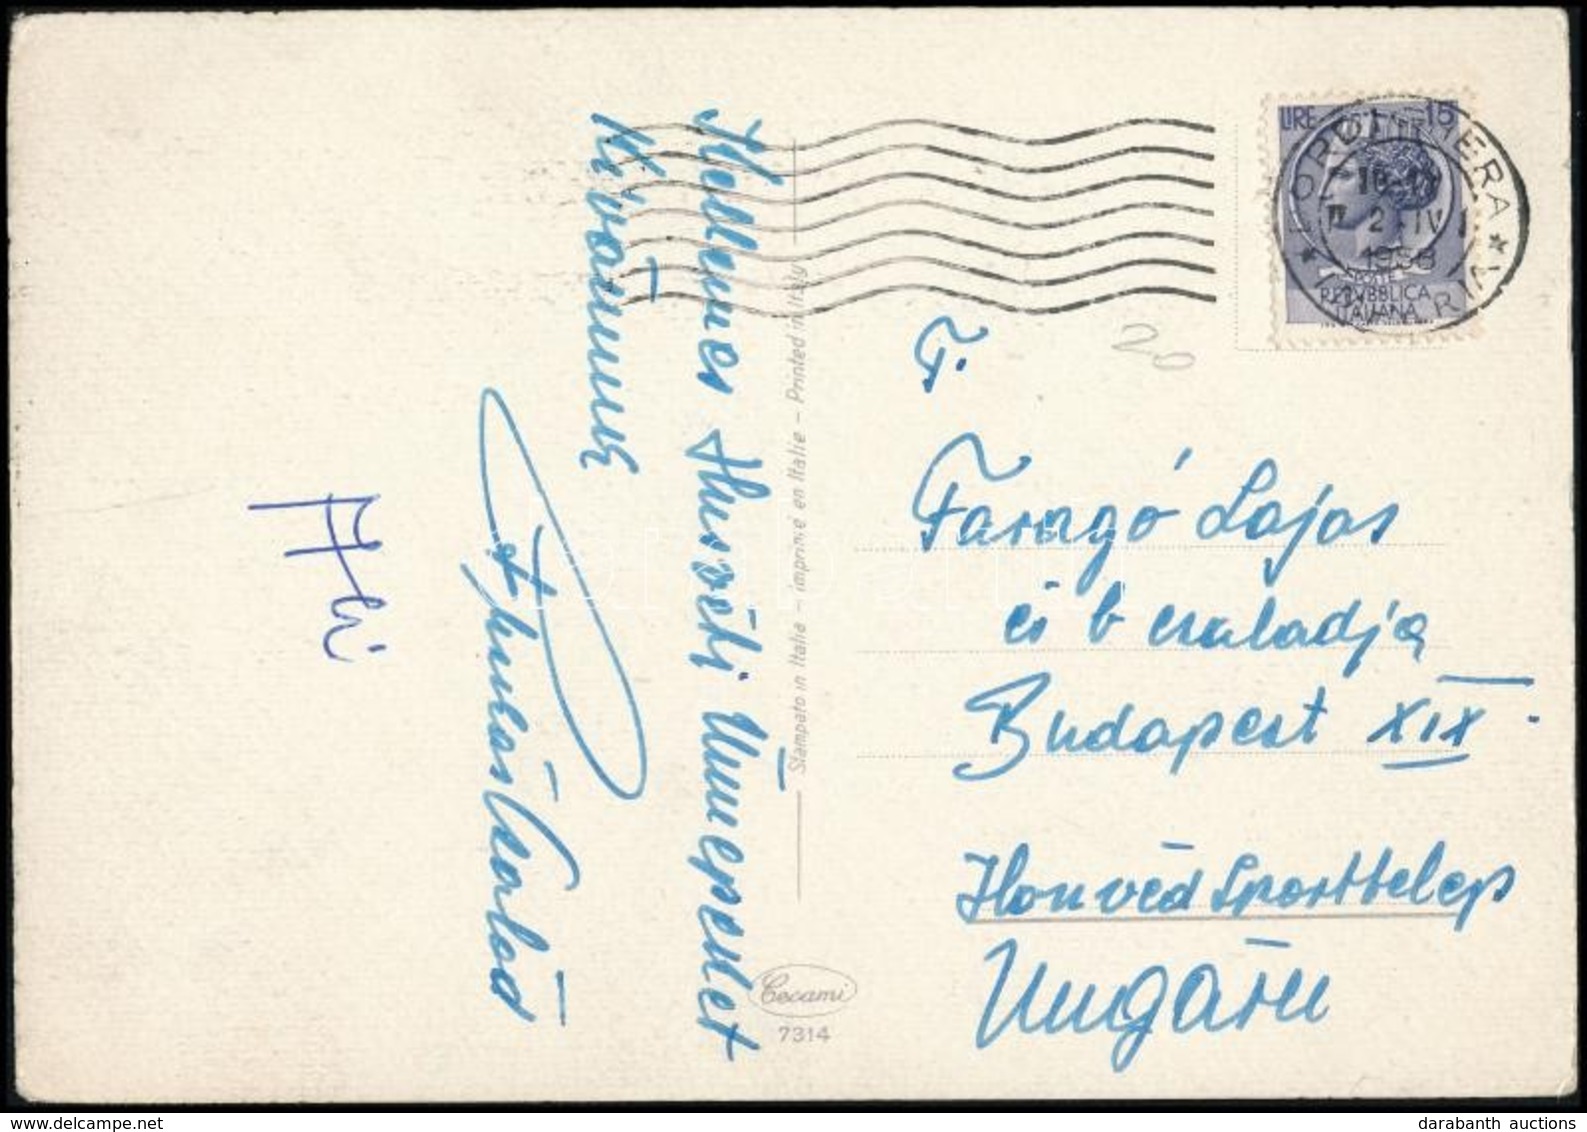 Kellemes Husvéti Ünnepeket
Kivánunk
Család
Stampato in Italia – imprimé en Italie – Printed in Italy
Cecami
7314
LIRE 15
POSTE
REPVBBLICA
ITALIANA
2 IV
20
F.
Faragó Lajos
és b családja
Budapest XIX.
Honvéd Sporttelep
Ungarn
darabanth auctions